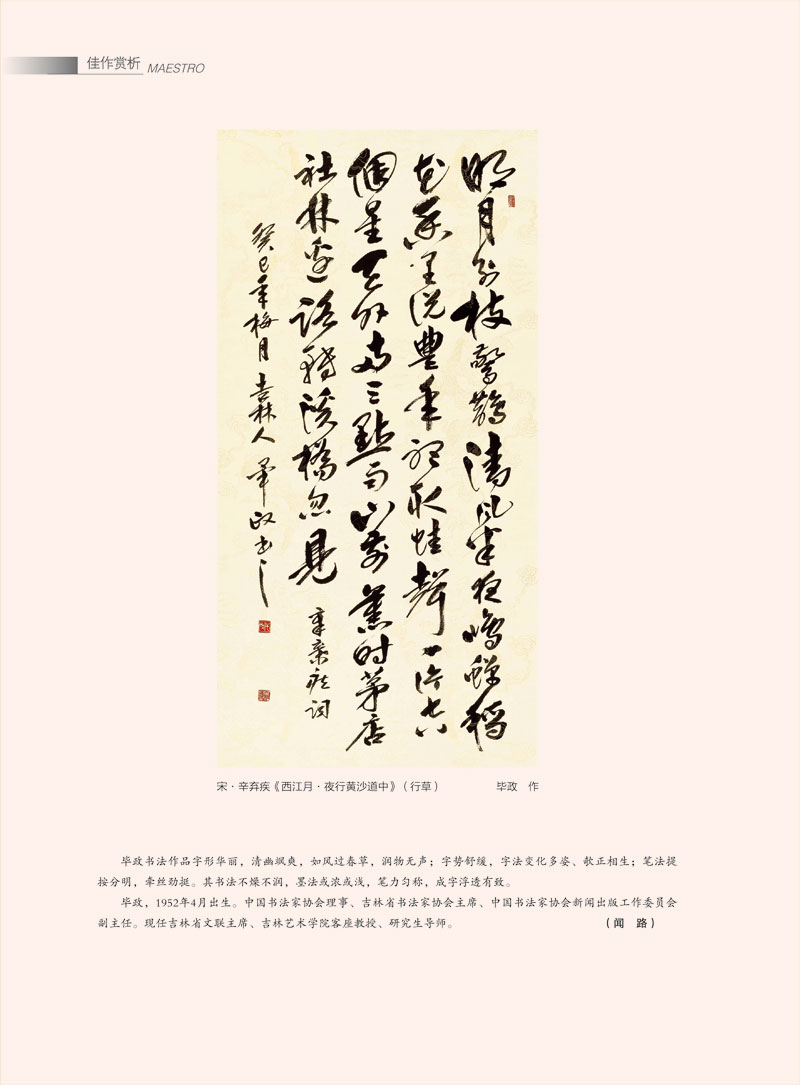 佳作赏析 MAESTRO
明月别枝驚鵲清风半夜鳴蟬稻
花香里说豐年聽取蛙聲一片七八
個星天外两三點雨山前舊時茅店
社林邊路轉溪橋忽見 辛棄疾词
癸巳年梅月吉林人畢政书之
宋·辛弃疾《西江月·夜行黄沙道中》（行草） 毕政 作
毕政书法作品字形华丽，清幽飒爽，如风过春草，润物无声；字势舒缓，字法变化多姿、欹正相生；笔法提
按分明，牵丝劲挺。其书法不燥不润，墨法或浓或浅，笔力匀称，成字浮透有致。
毕政，1952年4月出生。中国书法家协会理事、吉林省书法家协会主席、中国书法家协会新闻出版工作委员会
副主任。现任吉林省文联主席、吉林艺术学院客座教授、研究生导师。 （闻 路）